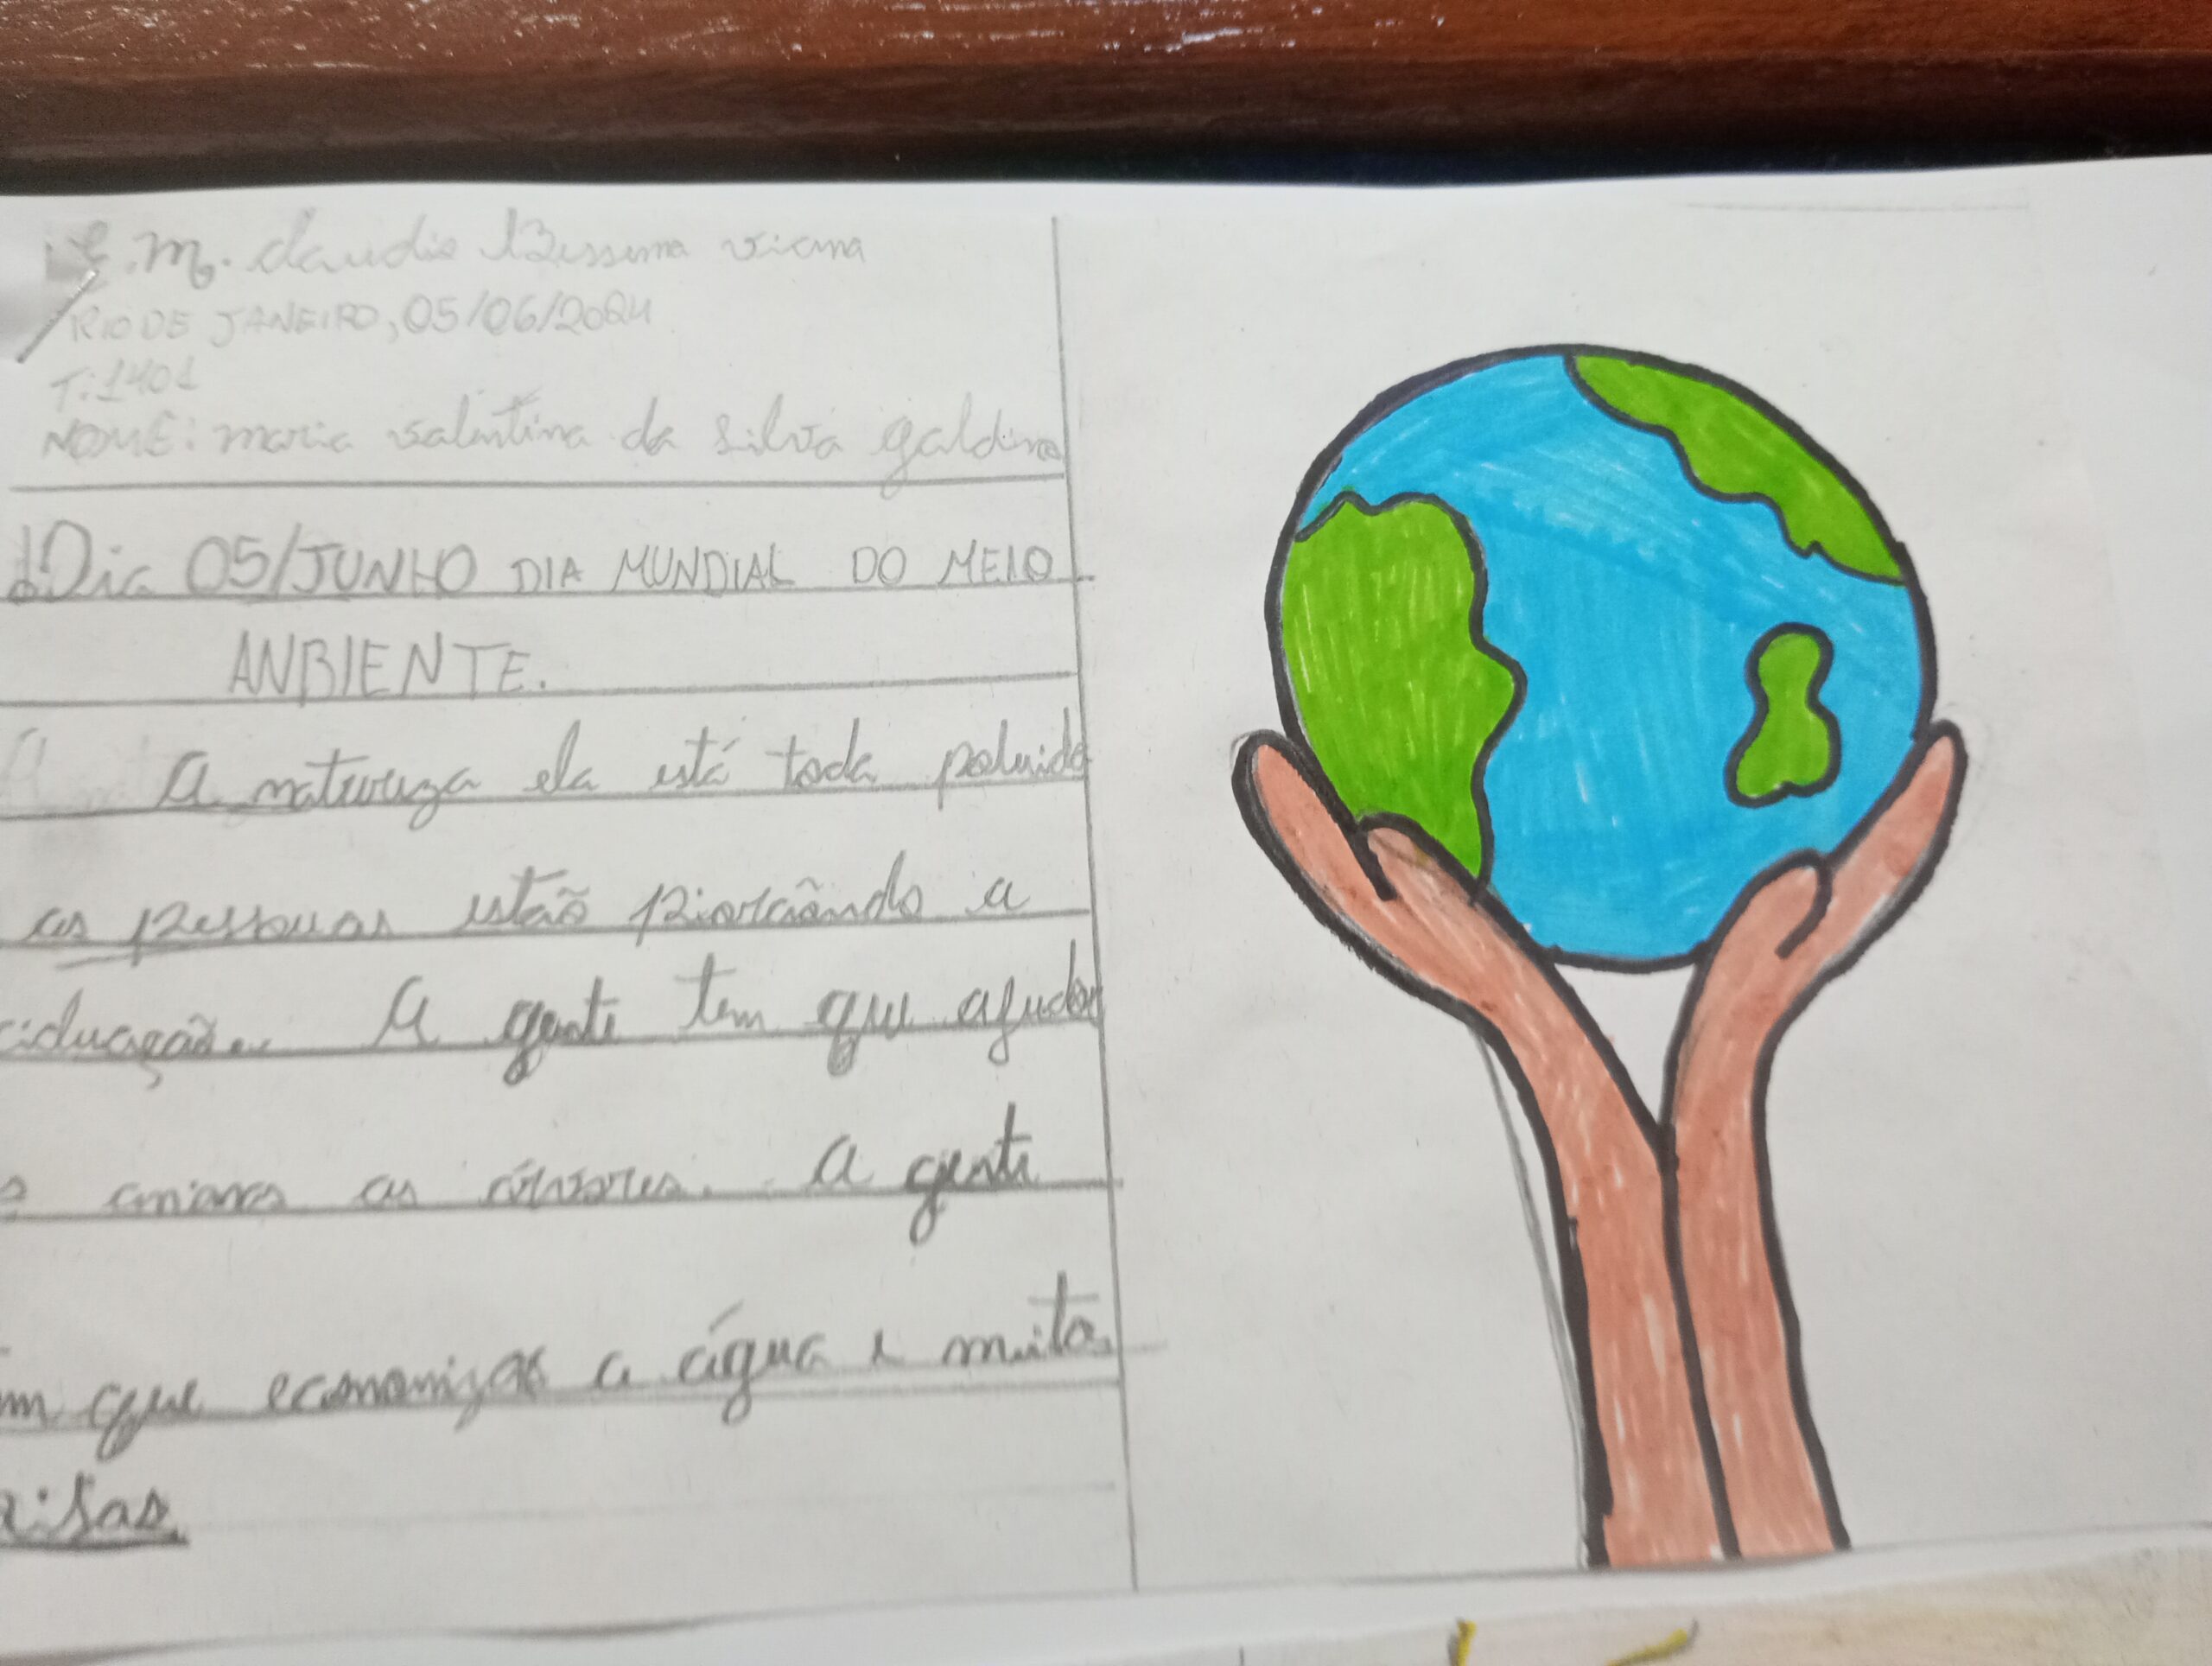 E.M. Claudio Bessema viana
RIO DE JANEIRO, 05/06/2024
T: 1401
NOME: maria valentina da silva galdino
Dia 05/JUNHO DIA MUNDIAL DO MEIO
ANBIENTE.
A natureza ela está toda poluida
as pessouas estão
A gente tem que ajudar
as A gente
que economizar a água e muitas